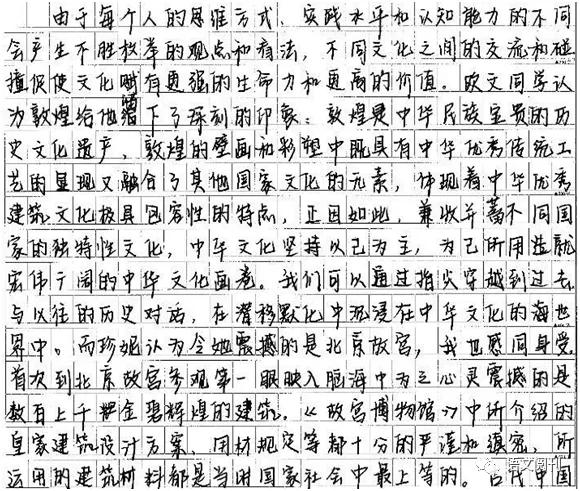 由于每个人的思维方式、实践水平和认知能力的不同
会产生不胜枚举的观点和看法，不同文化之间的交流和碰
撞促使文化时有更强的生命力和更高的价值。欧文同学认
为敦煌给他留下了深刻的印象：敦煌是中华民族宝贵的历
史文化遗产，敦煌的壁画和彩塑中既具有中华优秀传统工
艺的显现又融合了其他国家文化的元素，体现着中华优秀
建筑文化极具包容性的特点，正因如此，兼收并蓄不同国
家的独特性文化，中华文化坚持以己为主，为己所用造就
宏伟广阔的中华文化画卷。我们可以通过指尖穿越到过去
与以往的历史对话，在潜移默化中沉浸在中华文化的海世
界中。而珍妮认为令她震撼的是北京故宫，我也感同身受
首次到北京故宫参观第一眼映入脑海中为之心灵震撼的是
数百上千辉金碧辉煌的建筑。《故宫博物馆》中所介绍的
皇家建筑设计方案、用材规定等都十分的严谨和缜密，所
运用的建筑材料都是当时国家社会中最上等的。古代中国
语文阅刊